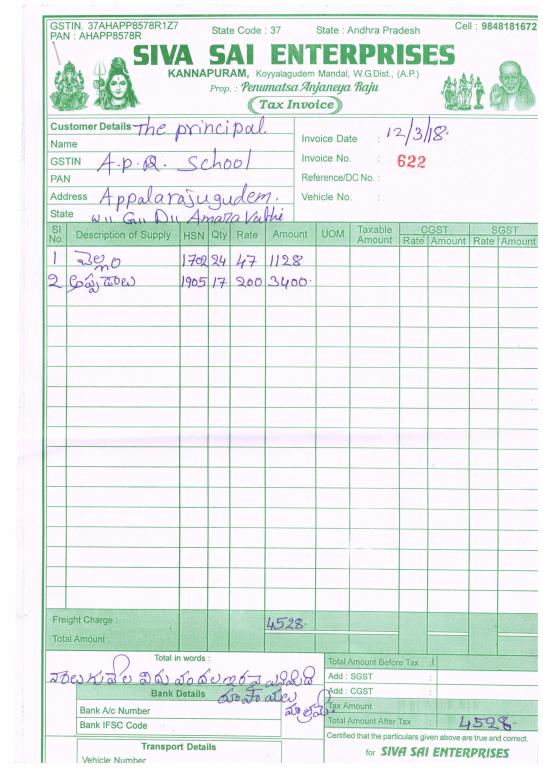 GSTIN. 37AHAPP8578R1Z7 State Code : 37 State : Andhra Pradesh Cell : 9848181672
PAN : AHAPP8578R
SIVA SAI ENTERPRISES
KANNAPURAM, Koyyalagudem Mandal, W.G.Dist., (A.P.)
Prop. : Penumatsa Anjaneya Raju
Tax Invoice
Customer Details The principal.
Name
GSTIN A.p.R. School
PAN
Address Appalarajugudem.
State W,, G,, D,, Amaravathi
Invoice Date : 12/3/18.
Invoice No. : 622
Reference/DC No. :
Vehicle No. :
Sl No. Description of Supply HSN Qty Rate Amount UOM Taxable Amount CGST Rate Amount SGST Rate Amount
1 చెల్లం 1702 24 47 1128
2 అప్పడాలు 1905 17 200 3400.
Freight Charge :
4528.
Total Amount :
Total in words :
నాలుగువేల ఐదు వందల ఇరవై ఎనిమిది
రూపాయలు
మాత్రమే.
Bank Details
Bank A/c Number
Bank IFSC Code
Transport Details
Vehicle Number
Total Amount Before Tax :
Add : SGST :
Add : CGST :
Tax Amount
Total Amount After Tax 4528.
Certified that the particulars given above are true and correct.
for SIVA SAI ENTERPRISES